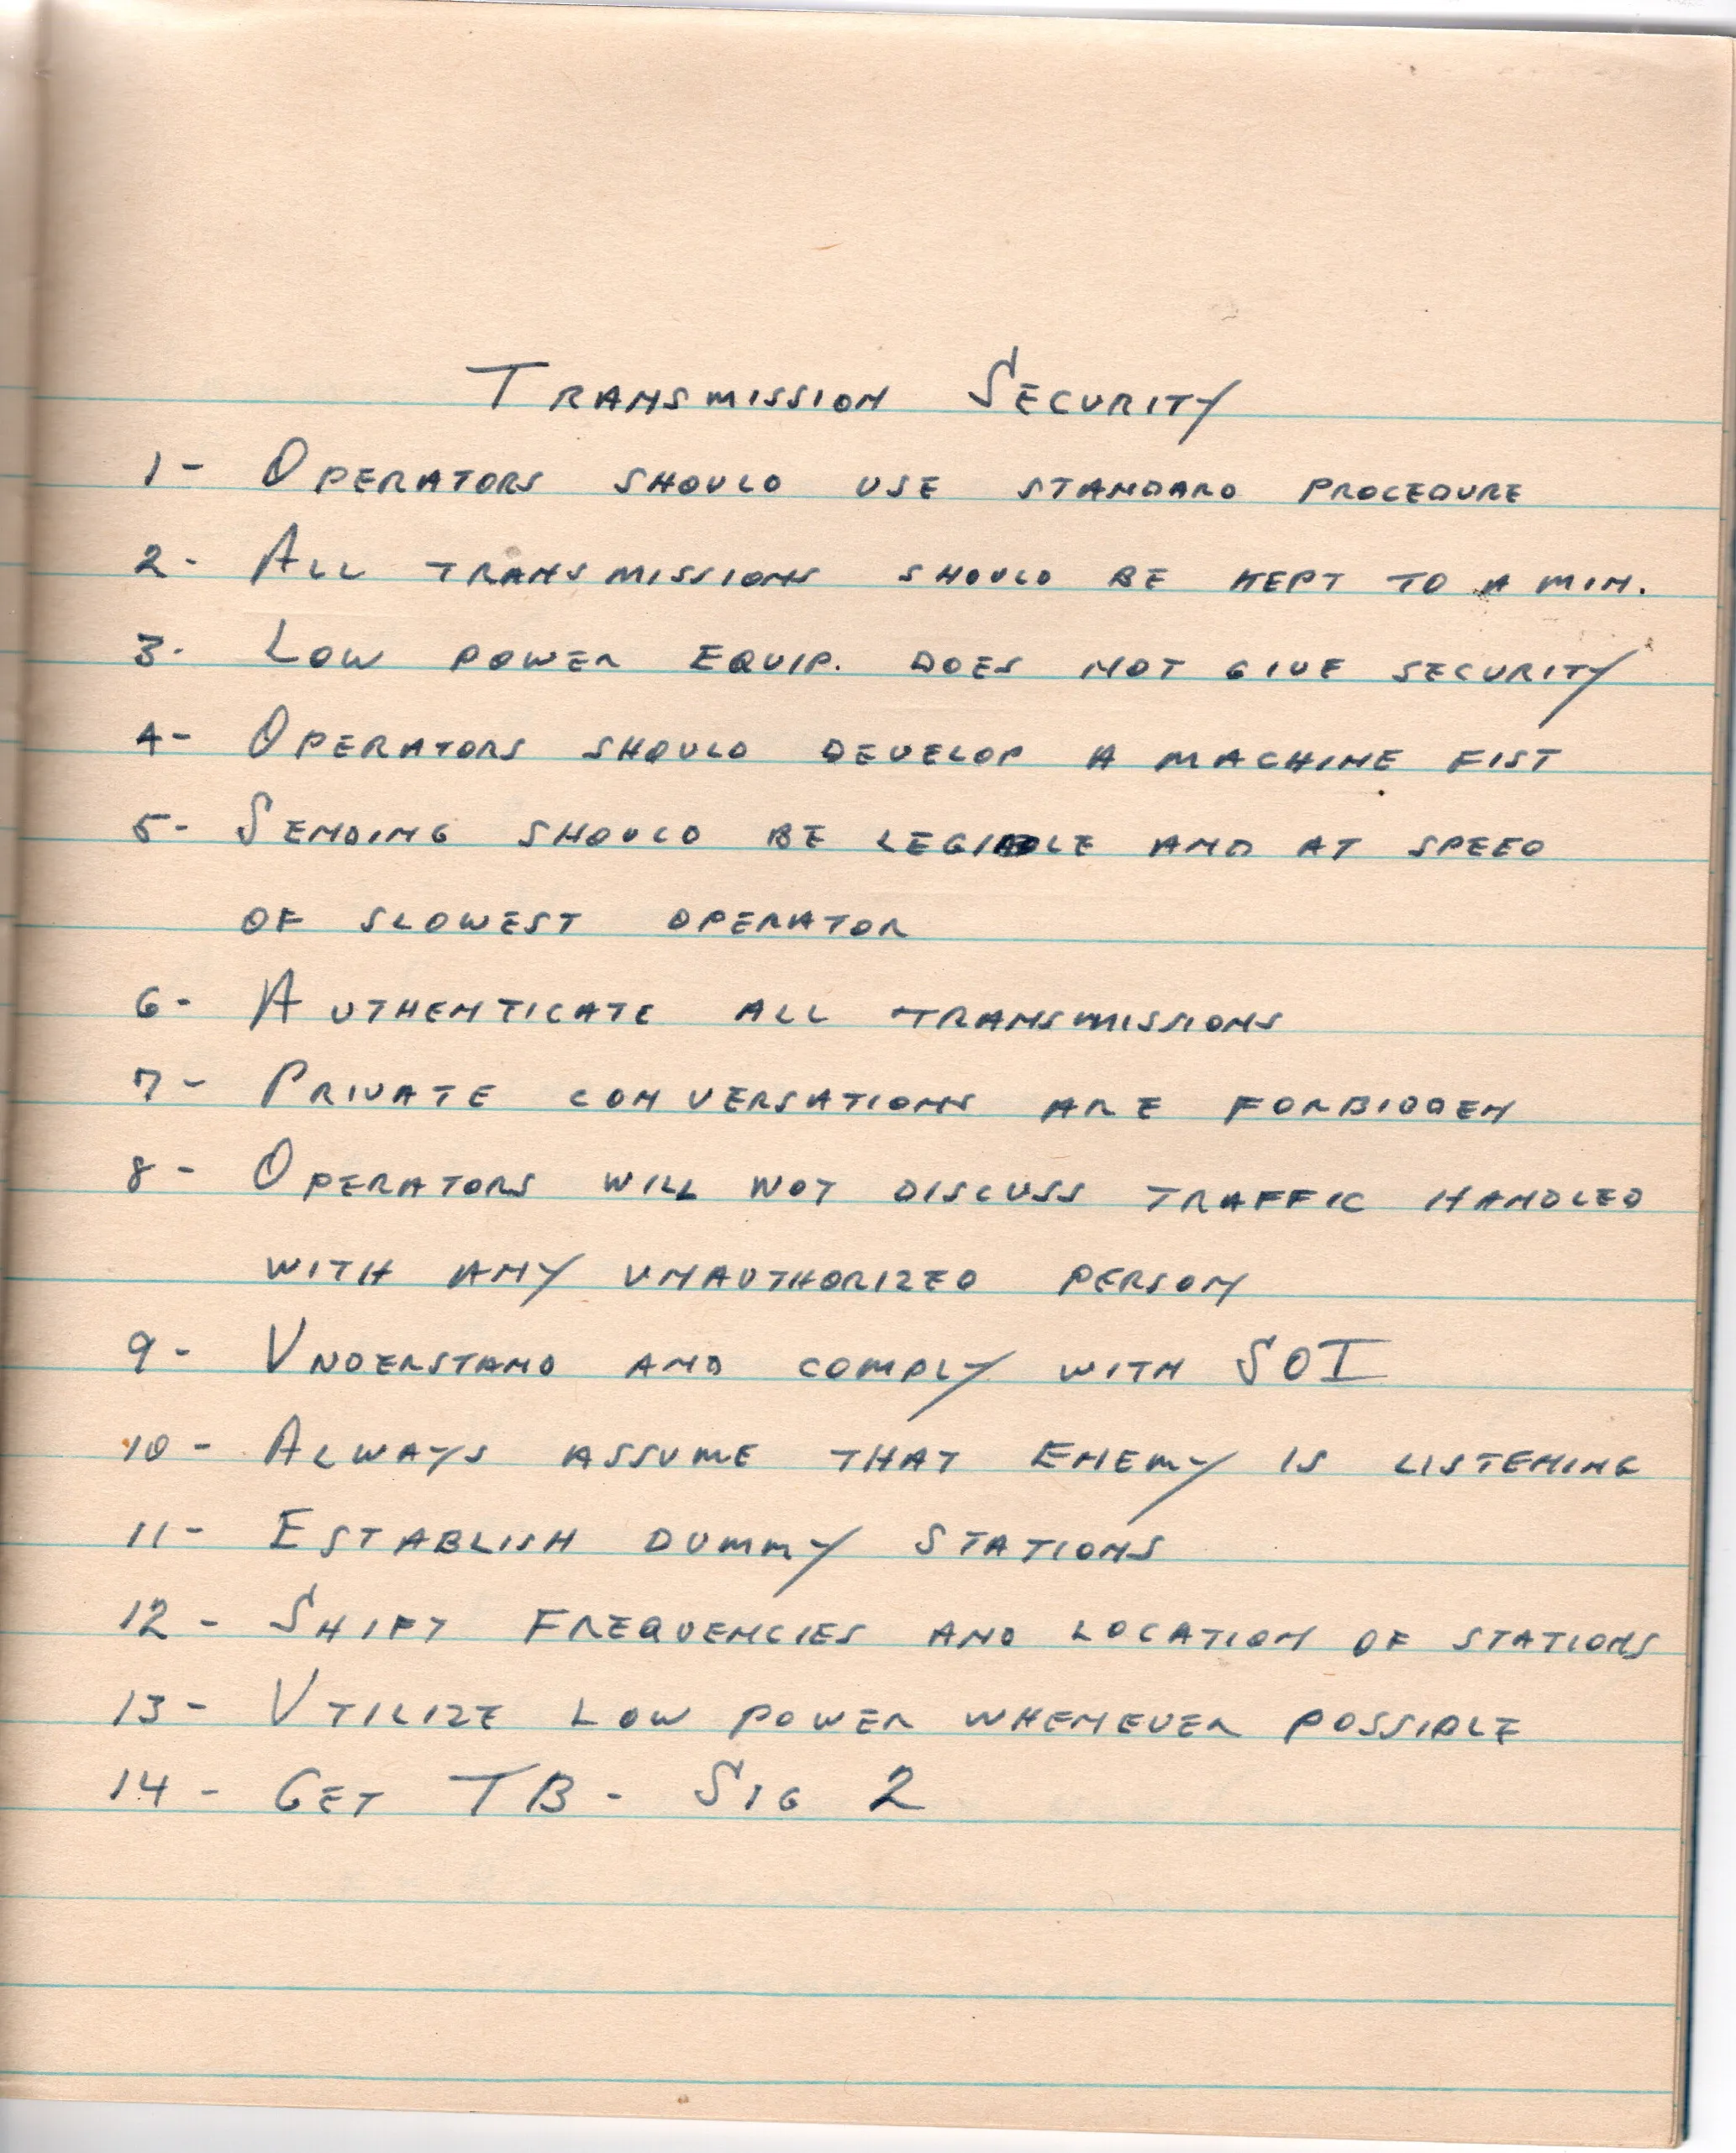 Transmission Security
1- Operators should use standard procedure
2- All transmissions should be kept to a min.
3- Low power equip. does not give security
4- Operators should develop a machine fist
5- Sending should be legible and at speed
of slowest operator
6- Authenticate all transmissions
7- Private conversations are forbidden
8- Operators will not discuss traffic handled
with any unauthorized person
9- Understand and comply with SOI
10- Always assume that Enemy is listening
11- Establish dummy stations
12- Shift frequencies and location of stations
13- Utilize low power whenever possible
14- Get TB- Sig 2